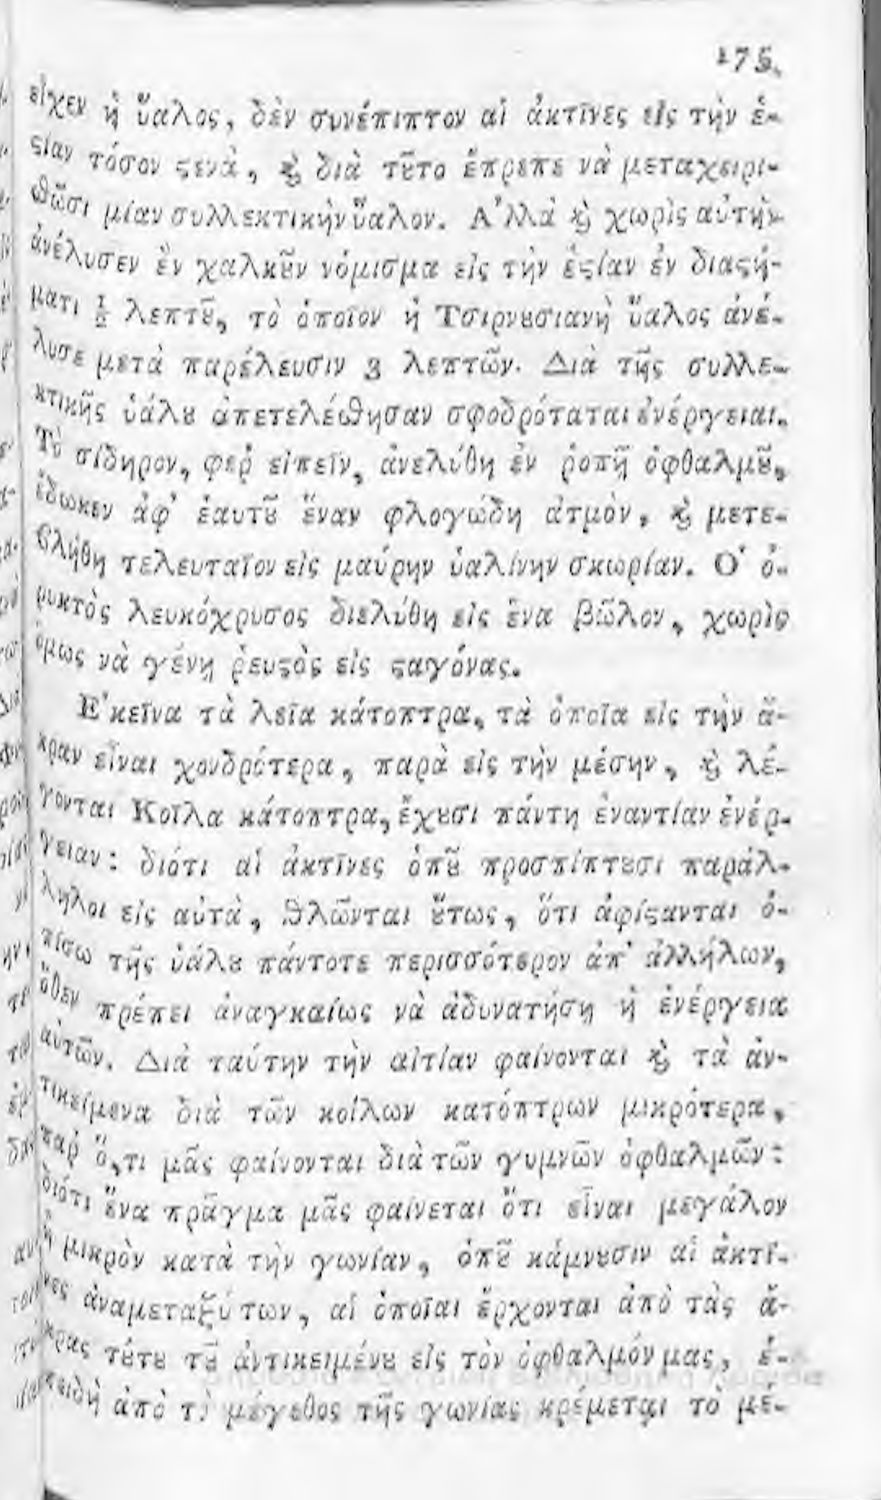 175.
εἶχεν ἡ ὕαλος, δὲν συνέπιπτον αἱ ἀκτῖνες εἰς τὴν ἑ-
ϛίαν τόσον ϛενὰ, ϗ διὰ τȣ͂το ἔπρεπε νὰ μεταχειρι-
θῶσι μίαν συλλεκτικὴν ὕαλον. Α᾿λλὰ ϗ χωρὶς αὐτὴν
ἀνέλυσεν ἓν χαλκȣ͂ν νόμισμα εἰς τὴν ἑϛίαν ἐν διαϛή-
ματι ½ λεπτȣ͂, τὸ ὁποῖον ἡ Τσιρνȣσιανὴ ὕαλος ἀνέ-
λυσε μετὰ παρέλευσιν 3 λεπτῶν. Διὰ τῆς συλλε-
κτικῆς ὑάλȣ ἀπετελέωθησαν σφοδρόταται ἐνέργειαι.
Τὸ σίδηρον, φερ᾿ εἰπεῖν, ἀνελύθη ἐν ῥοπῇ ὀφθαλμȣ͂,
ἔδωκεν ἀφ᾿ ἑαυτȣ͂ ἕναν φλογώδη ἀτμὸν, ϗ μετε-
βλήθη τελευταῖον εἰς μαύρην ὑαλίνην σκωρίαν. Ο῾ ὀ-
ρυκτὸς λευκόχρυσος διελύθη εἰς ἕνα βῶλον, χωρὶς
ὅμως νὰ γένῃ ῥευϛὸς εἰς ϛαγόνας.
Ε᾿κεῖνα τὰ λεῖα κάτοπτρα, τὰ ὁποῖα εἰς τὴν ἄ-
κραν εἶναι χονδρότερα, παρὰ εἰς τὴν μέσην, ϗ λέ-
γονται Κοῖλα κάτοπτρα, ἔχȣσι πάντῃ ἐναντίαν ἐνέρ-
γειαν: διότι αἱ ἀκτῖνες ὁπȣ͂ προσπίπτȣσι παράλ-
ληλοι εἰς αὐτὰ, θλῶνται ȣ῞τως, ὅτι ἀφίϛανται ὀ-
πίσω τῆς ὑάλȣ πάντοτε περισσότερον ἀπ᾿ ἀλλήλων,
ὅθεν πρέπει ἀναγκαίως νὰ ἀδυνατήσῃ ἡ ἐνέργεια
αὐτῶν. Διὰ ταύτην τὴν αἰτίαν φαίνονται ϗ τὰ ἀν-
τικείμενα διὰ τῶν κοίλων κατόπτρων μικρότερα,
παρ᾿ ὅ,τι μᾶς φαίνονται διὰ τῶν γυμνῶν ὀφθαλμῶν:
διότι ἕνα πρᾶγμα μᾶς φαίνεται ὅτι εἶναι μεγάλον
ἢ μικρὸν κατὰ τὴν γωνίαν, ὁπȣ͂ κάμνȣσιν αἱ ἀκτῖ-
νες ἀναμεταξύ των, αἱ ὁποῖαι ἔρχονται ἀπὸ τὰς ἄ-
κρας τȣ́τȣ τȣ͂ ἀντικειμένȣ εἰς τὸν ὀφθαλμόν μας, ἐ-
πειδὴ ἀπὸ τὸ μέγεθος τῆς γωνίας κρέμεται τὸ μέ-